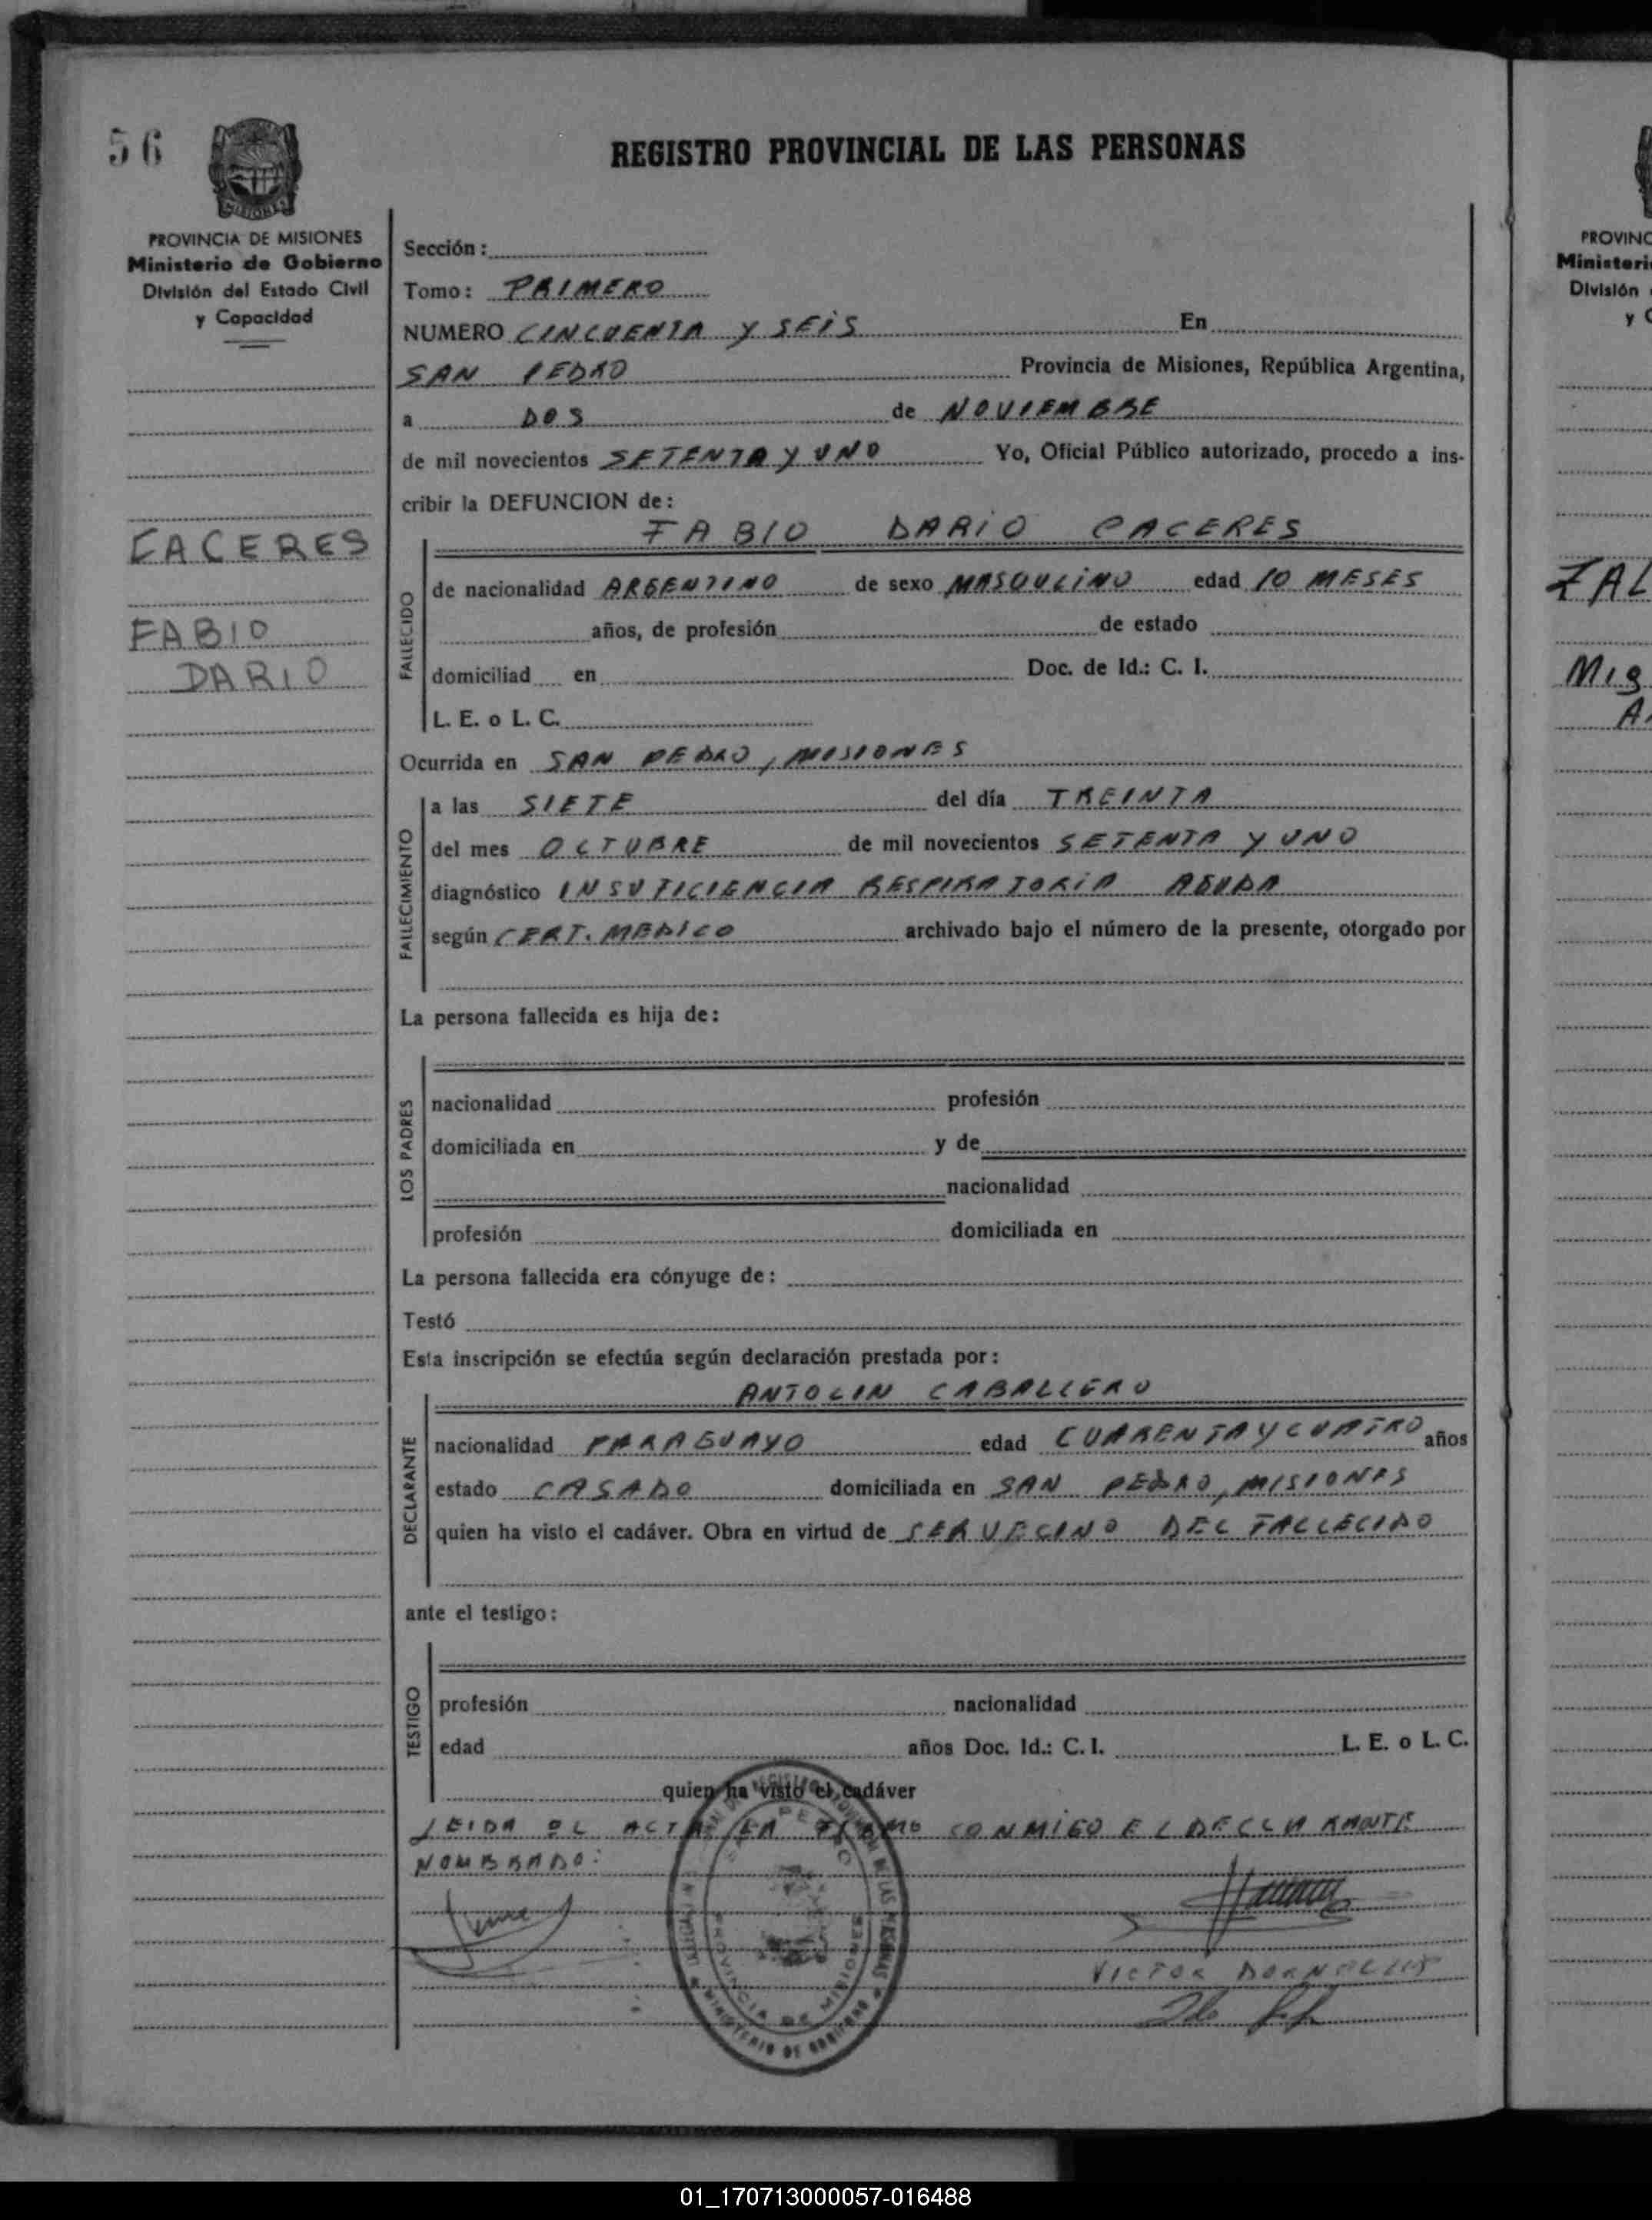 56
MISIONES
PROVINCIA DE MISIONES
Ministerio de Gobierno
División del Estado Civil
y Capacidad
CACERES
FABIO
DARIO
REGISTRO PROVINCIAL DE LAS PERSONAS
Sección:
Tomo: PRIMERO
NUMERO CINCUENTA Y SEIS En
SAN PEDRO Provincia de Misiones, República Argentina,
a DOS de NOVIEMBRE
de mil novecientos SETENTA Y UNO Yo, Oficial Público autorizado, procedo a ins-
cribir la DEFUNCION de:
FABIO DARIO CACERES
FALLECIDO
de nacionalidad ARGENTINO de sexo MASCULINO edad 10 MESES
años, de profesión de estado
domiciliad en Doc. de Id.: C. I.
L. E. o L. C.
Ocurrida en SAN PEDRO, MISIONES
FALLECIMIENTO
a las SIETE del día TREINTA
del mes OCTUBRE de mil novecientos SETENTA Y UNO
diagnóstico INSUFICIENCIA RESPIRATORIA AGUDA
según CERT. MEDICO archivado bajo el número de la presente, otorgado por
La persona fallecida es hija de:
LOS PADRES
nacionalidad profesión
domiciliada en y de
nacionalidad
profesión domiciliada en
La persona fallecida era cónyuge de:
Testó
Esta inscripción se efectúa según declaración prestada por:
ANTOLIN CABALLERO
DECLARANTE
nacionalidad PARAGUAYO edad CUARENTA Y CUATRO años
estado CASADO domiciliada en SAN PEDRO, MISIONES
quien ha visto el cadáver. Obra en virtud de SER VECINO DEL FALLECIDO
ante el testigo:
TESTIGO
profesión nacionalidad
edad años Doc. Id.: C. I. L. E. o L. C.
quien ha visto el cadáver
LEIDA EL ACTA LA FIRMO CONMIGO EL DECLARANTE
NOMBRADO:
PROVINCIA DE MISIONES
MINISTERIO DE GOBIERNO
VICTOR
PROVINC
Ministeri
División
y C
ZAL
Mig
01_170713000057-016488